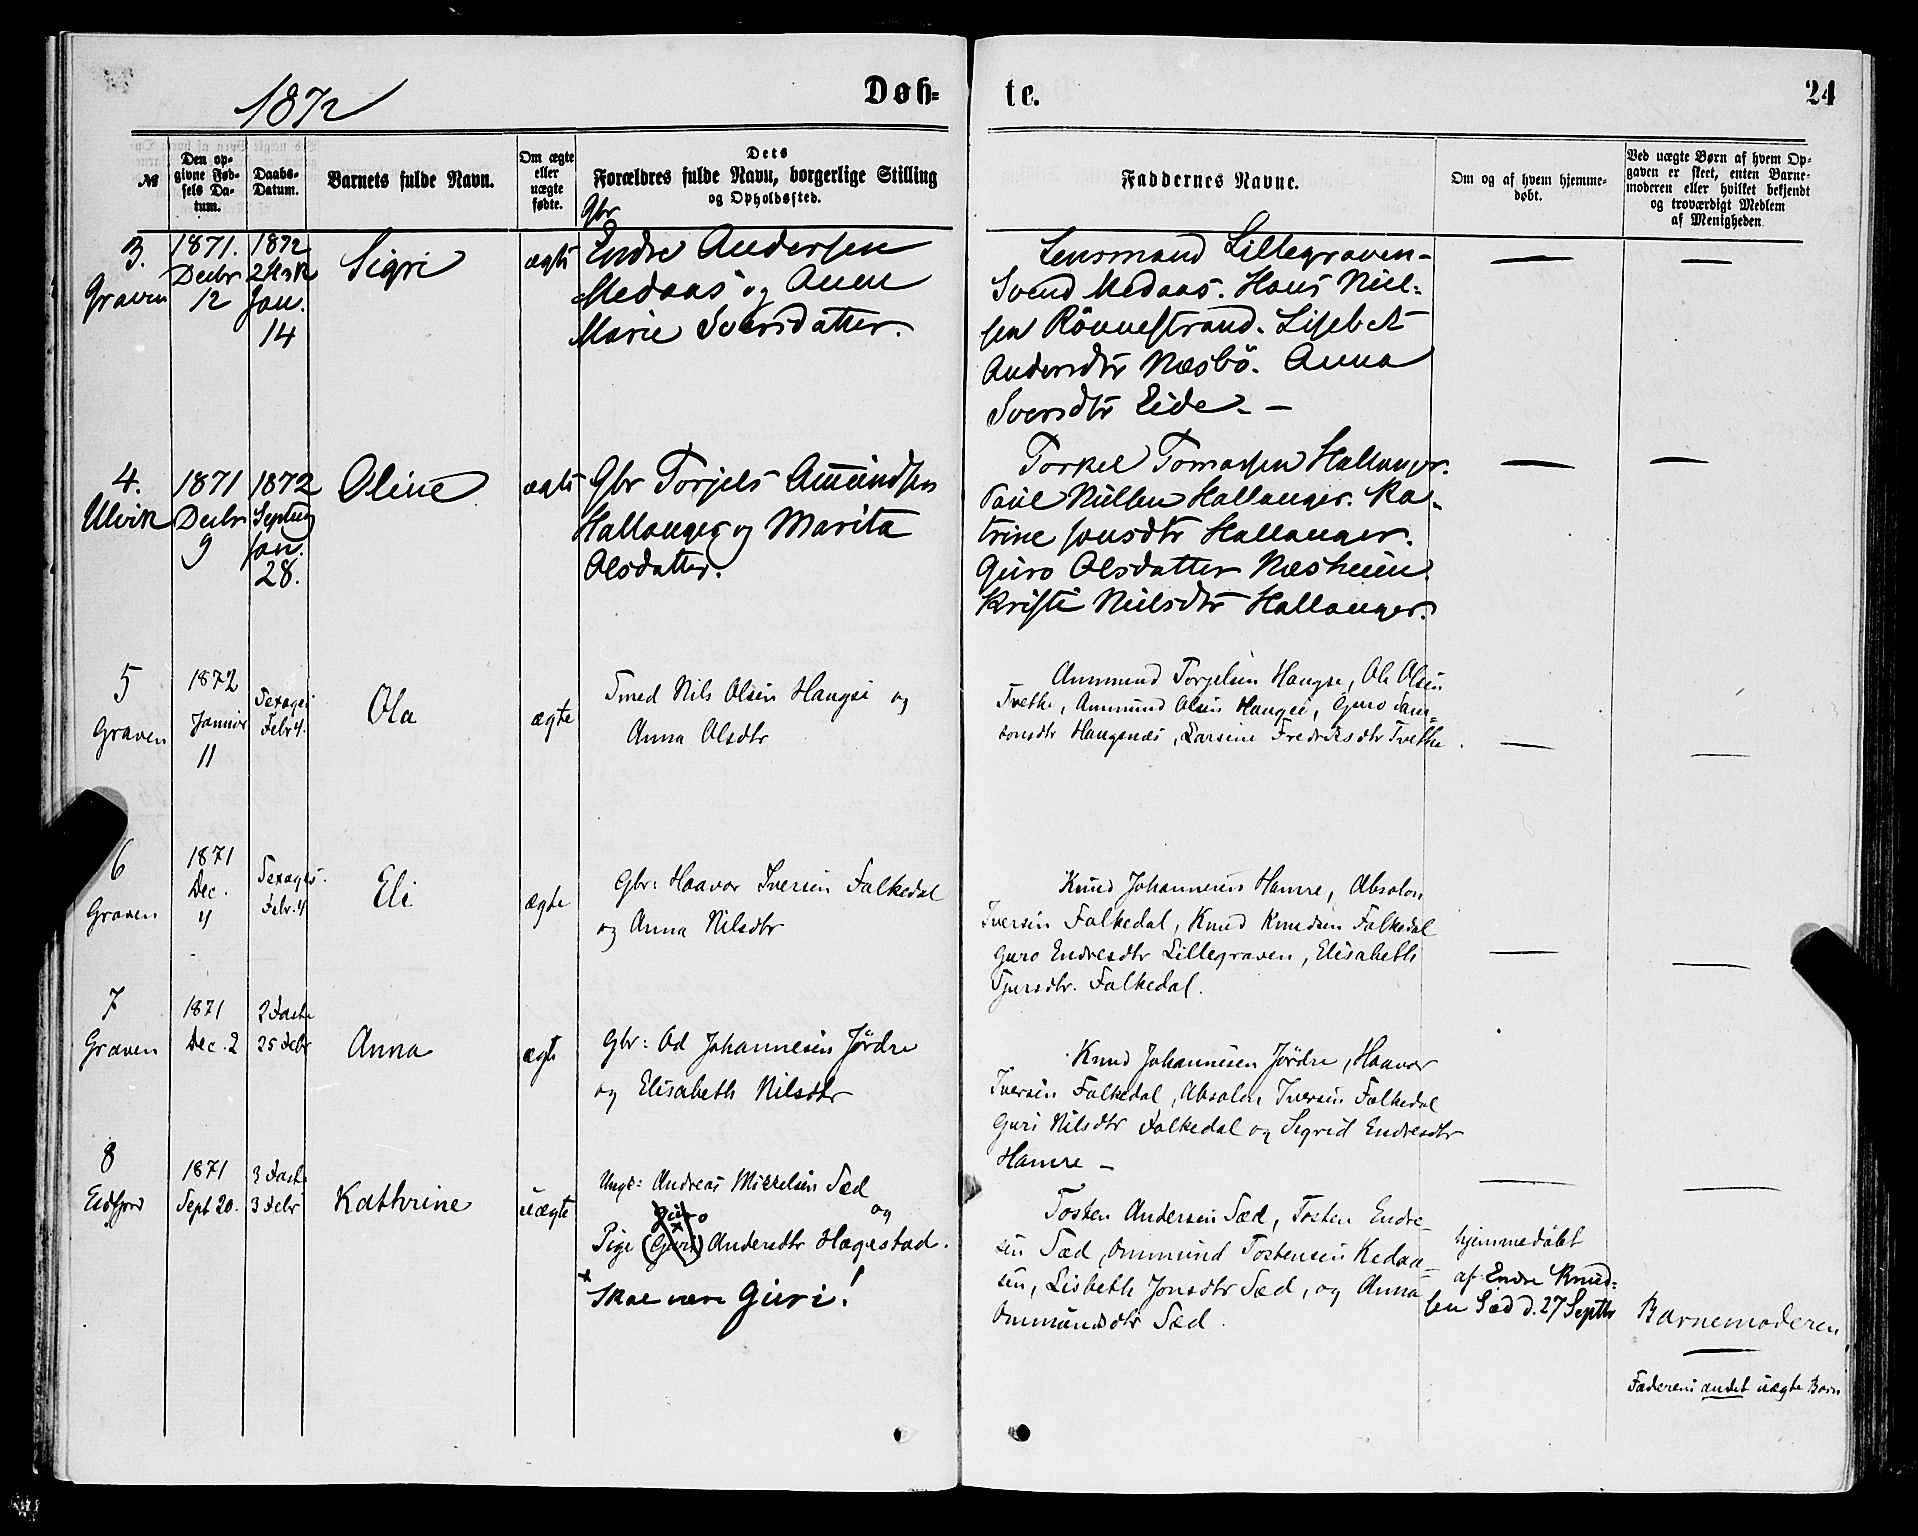 1872
Døb-
te.
24
№
Den op-
givne Fød-
sels Da-
tum.
Daabs-
Datum.
Barnets fulde Navn.
Om ægte
eller
uægte
fødte.
Dets
Forældres fulde Navn, borgerlige Stilling
og Opholdssted.
Faddernes Navne.
Om og af hvem hjemme-
døbt.
Ved uægte Børn af hvem Op-
gaven er skeet, enten Barne-
moderen eller hvilket bekjendt
og troværdigt Medlem
af Menigheden.
3.
Graven
1871.
Decbr
12
1872
Jan.
14
Sigri
ægte
Gbr
Endre Andersen
Medaas og Anna
Marie Sversdatter.
Lensmand Lillegraven-
Svend Medaas. Hans Niel-
sen Rønnestrand. Lisbet
Andersdtr Næsbø. Anna
Sversdtr Eide. —
4.
Ulvik
1871
Decbr
9
1872
Septug
Jan.
28.
Oline
ægte
Gbr Torjels Amundsen
Hallanger og Marita
Olsdatter.
Torkel Tomassen Hallanger.
Paul Nielsen Hallanger. Ka-
trine Jonsdtr Hallanger.
Guro Olsdatter Næsheim.
Kristi Nielsdtr Hallanger.
5
Graven
1872
Januar
11
Sexages
Febr 4.
Ola
ægte
Smed Nils Olsen Haugse og
Anna Olsdtr
Ammund Torjelsen Haugse, Ole Olsen
Tvethe, Ammund Olsen Haugse, Guro Sam-
sonsdtr Haugsnæs, Larsine Fredriksdtr Tvethe.
6
Graven
1871
Dec.
4
Sexages.
Febr. 4
Eli
ægte
Gbr: Haavar Iversen Falkedal
og Anna Nilsdtr
Knud Johannesen Hamre, Absalon
Iversen Falkedal, Knud Knudsen Falkedal
Guro Endresdtr Lillegraven, Elisabeth
Falkedal.
7
Graven
1871
Dec. 2
2 Faste
25 Febr
Anna
ægte
Gbr: Od Johannesen Jørdre
og Elisabeth Nilsdtr
Knud Johannesen Jørdre, Haavar
Iversen Falkedal, Absalon Iversen Falkedal
Guri Nilsdtr Falkedal og Sigrid Endresdtr
Hamre —
8
Eidfjord
1871
Sept 20.
3 Faste
3 Febr
Kathrine
uægte
Ungk: Andreas Mikkelsen Sæd
og
Guro
Pige (Guri) Andersdtr Hagestad.
× Skal være Guri!
Tosten Andersen Sæd, Tosten Endre-
sen Sæd, Ommund Tostensen Kedaa-
sen, Lisbeth Jonsdtr Sæd, og Anna
Ommundsdtr Sæd.
hjemmedøbt
af Endre Knud-
sen Sæd d. 27 Septbr
Barnemoderen
Faderens andet uægte Barn